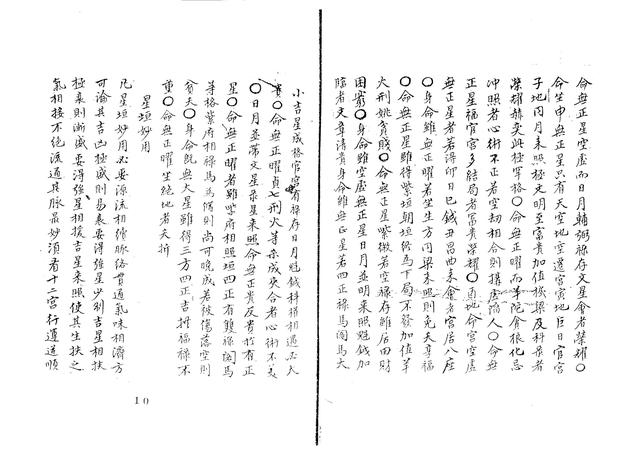 命無正星空虛而日月輔弼祿存文星會者榮耀〇
命坐申無正星只有天空地空遷宮寅地巨日官宮
子地同月來照極文明至富貴加值機梁及科祿者
榮耀赫奕此極宰格〇命無正曜而羊陀貪狼化忌
沖照者心術不正若空劫相合則擯陷人〇命無
正星福官宮多結局者富貴榮耀〇貞地命宮空虛
無正星者若得卯日巳鉞丑昌曲來會者宮居八座
〇身命雖無正曜若坐生方同梁來照則免夭壽福
〇命無正星雖得紫垣朝垣終為下局不發加值羊
火刑姚貧賤〇命無正星紫微若空祿存雖居田財
困窮〇身命雖空虛無正星日月並明來照魁鉞加
臨者文章清貴身命雖無正星若四正祿馬
小吉星成格官宮有祿存日月魁鉞科權相遇必大
貴〇命無正曜貞七刑火等殺成災合者心術不美
〇日月並帶文星祿星來照命無正貴反貴於有正
星〇命無正曜者雖紫府相照垣四正有雙祿
等格紫府相祿馬為佐則尚可晚成若彼傷落空則
貧夭〇身命既無大星雖得三方四正吉拱福祿不
重〇命無正曜坐絕地者夭折
星垣妙用
凡星垣妙用必要源流相續脈絡貫通氣味相濟方
可論其吉凶極盛則易衰要得強星少弱吉星相扶
極衰則漸盛要得強星相援吉星來照使其生扶之
氣相接不絕派通其脈最妙須看十二宮行運通順
10